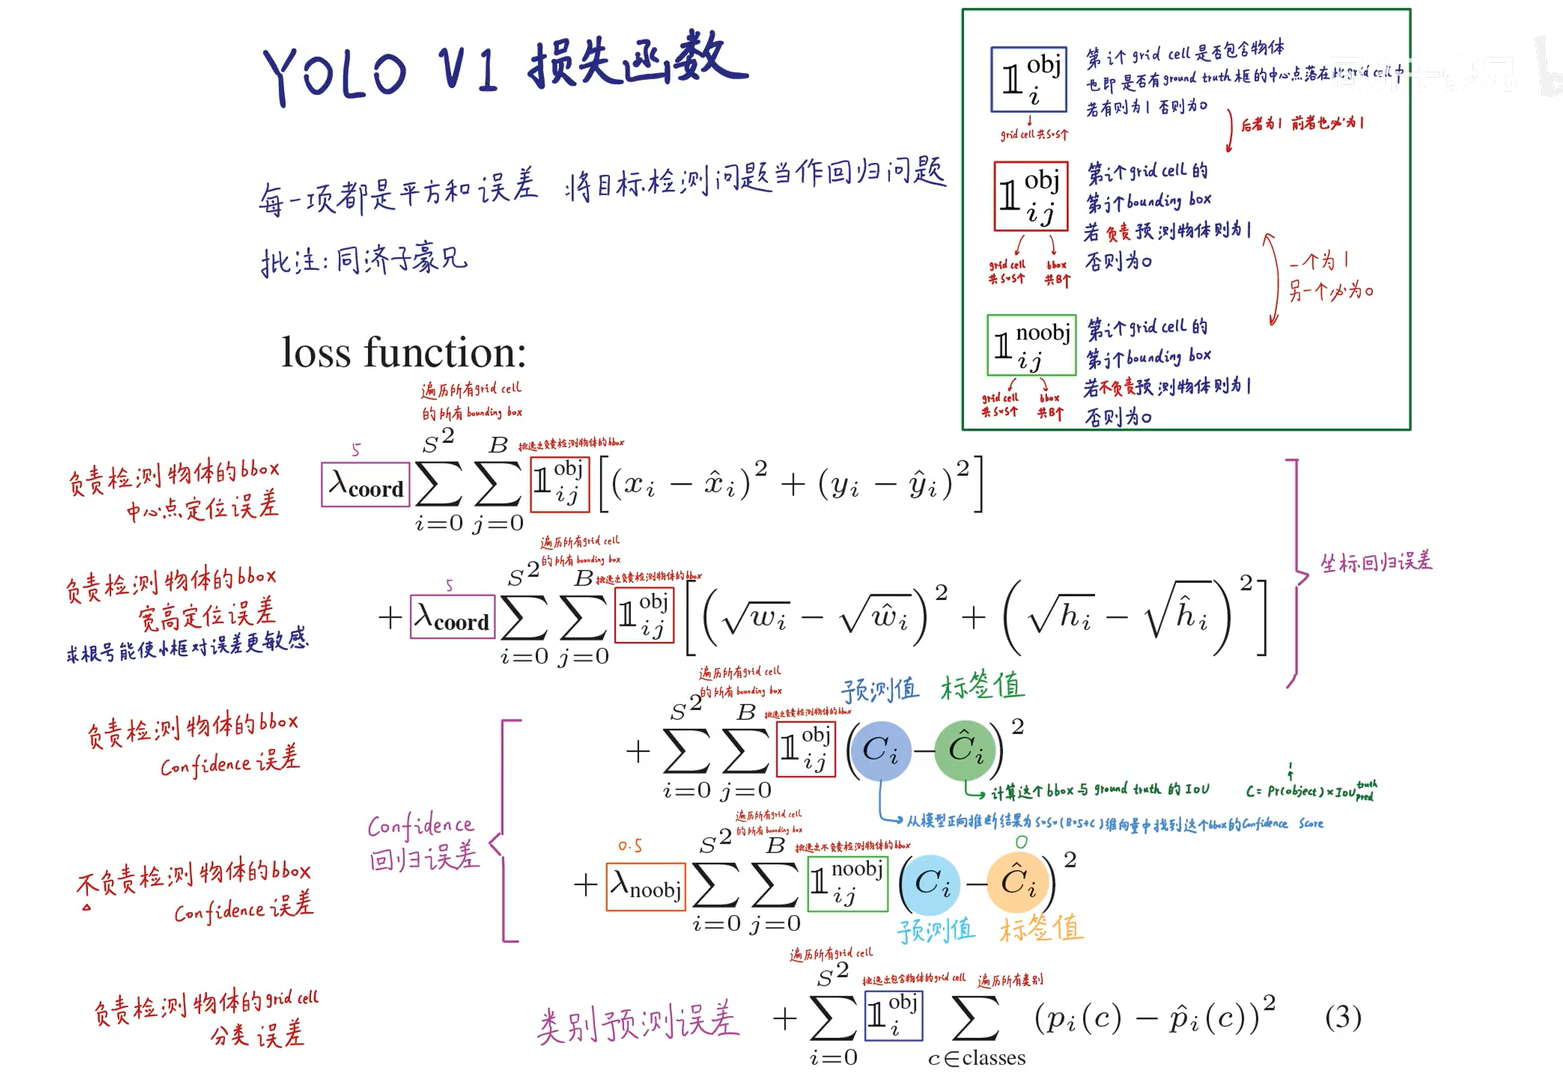 YOLO V1 损失函数
每一项都是平方和误差 将目标检测问题当作回归问题
批注:同济子豪兄
𝟙 obj i
第i个grid cell是否包含物体
也即是否有ground truth框的中心点落在此grid cell中
若有则为1 否则为0
grid cell 共S*S个
后者为1 前者也必为1
𝟙 obj ij
第i个grid cell的
第j个bounding box
若负责预测物体则为1
否则为0
grid cell 共S*S个
bbox 共B个
一个为1
另一个必为0
𝟙 noobj ij
第i个grid cell的
第j个bounding box
若不负责预测物体则为1
否则为0
grid cell 共S*S个
bbox 共B个
loss function:
遍历所有grid cell
的所有bounding box
挑选出负责检测物体的bbox
5
负责检测物体的bbox
中心点定位误差
λcoord ∑_{i=0}^{S²} ∑_{j=0}^{B} 𝟙_{ij}^{obj} [(x_i − x̂_i)² + (y_i − ŷ_i)²]
遍历所有grid cell
的所有bounding box
挑选出负责检测物体的bbox
5
负责检测物体的bbox
宽高定位误差
求根号能使小框对误差更敏感
+ λcoord ∑_{i=0}^{S²} ∑_{j=0}^{B} 𝟙_{ij}^{obj} [(√w_i − √ŵ_i)² + (√h_i − √ĥ_i)²]
坐标回归误差
遍历所有grid cell
的所有bounding box
挑选出负责检测物体的bbox
预测值 标签值
负责检测物体的bbox
Confidence 误差
+ ∑_{i=0}^{S²} ∑_{j=0}^{B} 𝟙_{ij}^{obj} (C_i − Ĉ_i)²
计算这个bbox与ground truth的IoU
1
C = Pr(object) × IoU truth pred
从模型正向推断结果为S*S*(B*5+C)维向量中找到这个bbox的Confidence Score
Confidence
回归误差
遍历所有grid cell
的所有bounding box
挑选出不负责检测物体的bbox
0.5
0
不负责检测物体的bbox
Confidence 误差
+ λnoobj ∑_{i=0}^{S²} ∑_{j=0}^{B} 𝟙_{ij}^{noobj} (C_i − Ĉ_i)²
预测值 标签值
遍历所有grid cell
挑选出包含物体的grid cell
遍历所有类别
负责检测物体的grid cell
分类误差
类别预测误差
+ ∑_{i=0}^{S²} 𝟙_i^{obj} ∑_{c∈classes} (p_i(c) − p̂_i(c))² (3)